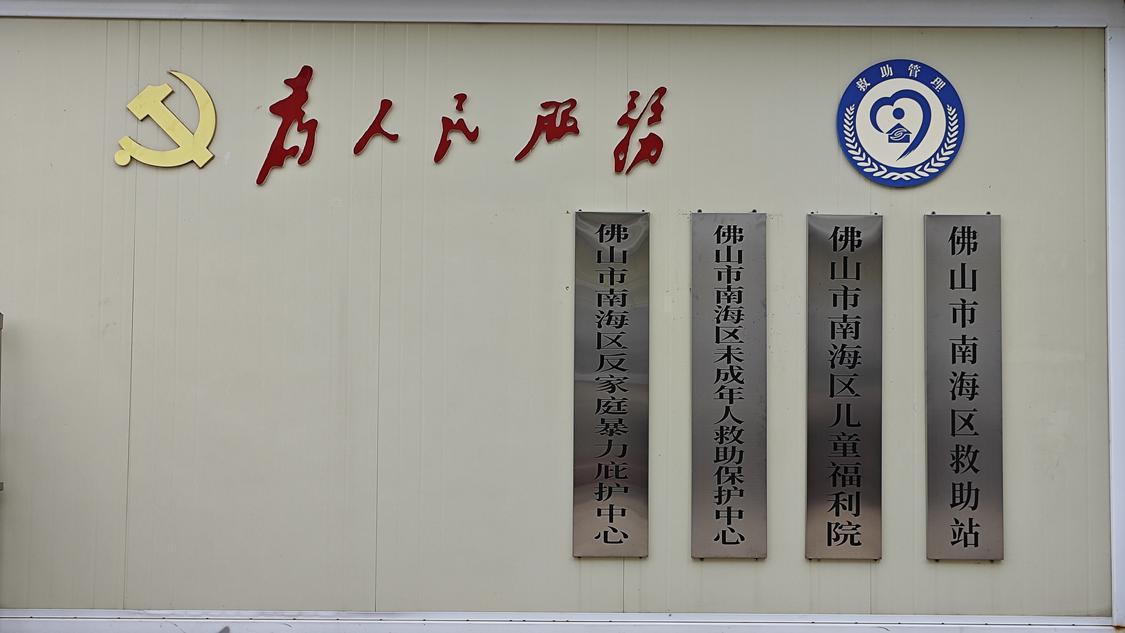 为人民服务
救助管理
佛山市南海区反家庭暴力庇护中心
佛山市南海区未成年人救助保护中心
佛山市南海区儿童福利院
佛山市南海区救助站